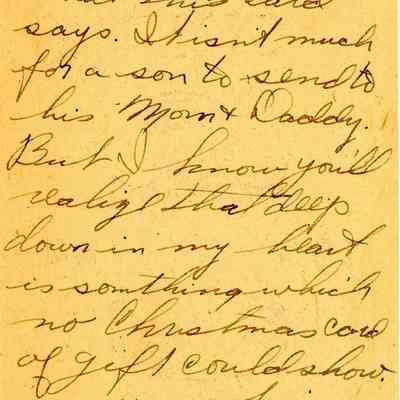 this card
says. It isn't much
for a son to send to
his Mom & Daddy.
But I know you'll
realize that deep
down in my heart
is somthing which
no Christmas card
of gift could show.